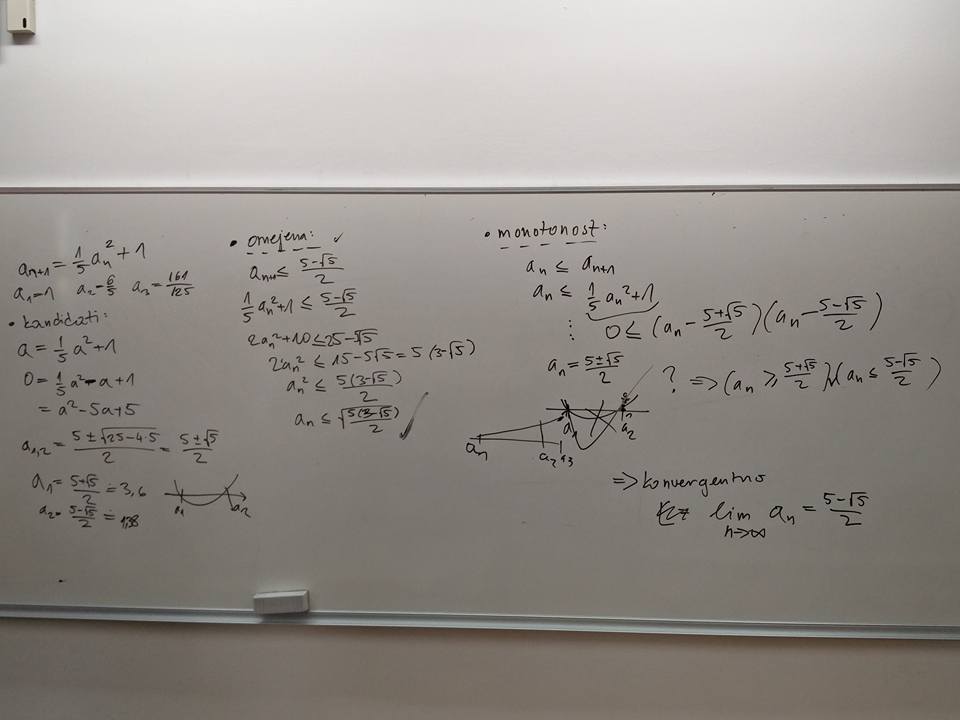 aₙ₊₁ = 1/5 aₙ² + 1
a₁=1 a₂=6/5 a₃=161/125
• kandidati:
a = 1/5 a² + 1
0 = 1/5 a² - a + 1
= a² - 5a + 5
a₁,₂ = (5 ± √(25 - 4·5))/2 = (5 ± √5)/2
a₁ = (5+√5)/2 ≐ 3,6
a₂ = (5-√5)/2 ≐ 1,38
a₁ a₂
• omejena: ✓
aₙ₊₁ ≤ (5-√5)/2
1/5 aₙ² + 1 ≤ (5-√5)/2
2aₙ² + 10 ≤ 25 - 5√5
2aₙ² ≤ 15 - 5√5 = 5(3-√5)
aₙ² ≤ 5(3-√5)/2
aₙ ≤ √(5(3-√5)/2)
• monotonost:
aₙ ≤ aₙ₊₁
aₙ ≤ 1/5 aₙ² + 1
⋮ 0 ≤ (aₙ - (5+√5)/2)(aₙ - (5-√5)/2)
aₙ = (5 ± √5)/2
? => (aₙ ≥ (5+√5)/2) ∨ (aₙ ≤ (5-√5)/2)
a₂
a₂ a₃
=> konvergentno
lim n→∞ aₙ = (5-√5)/2